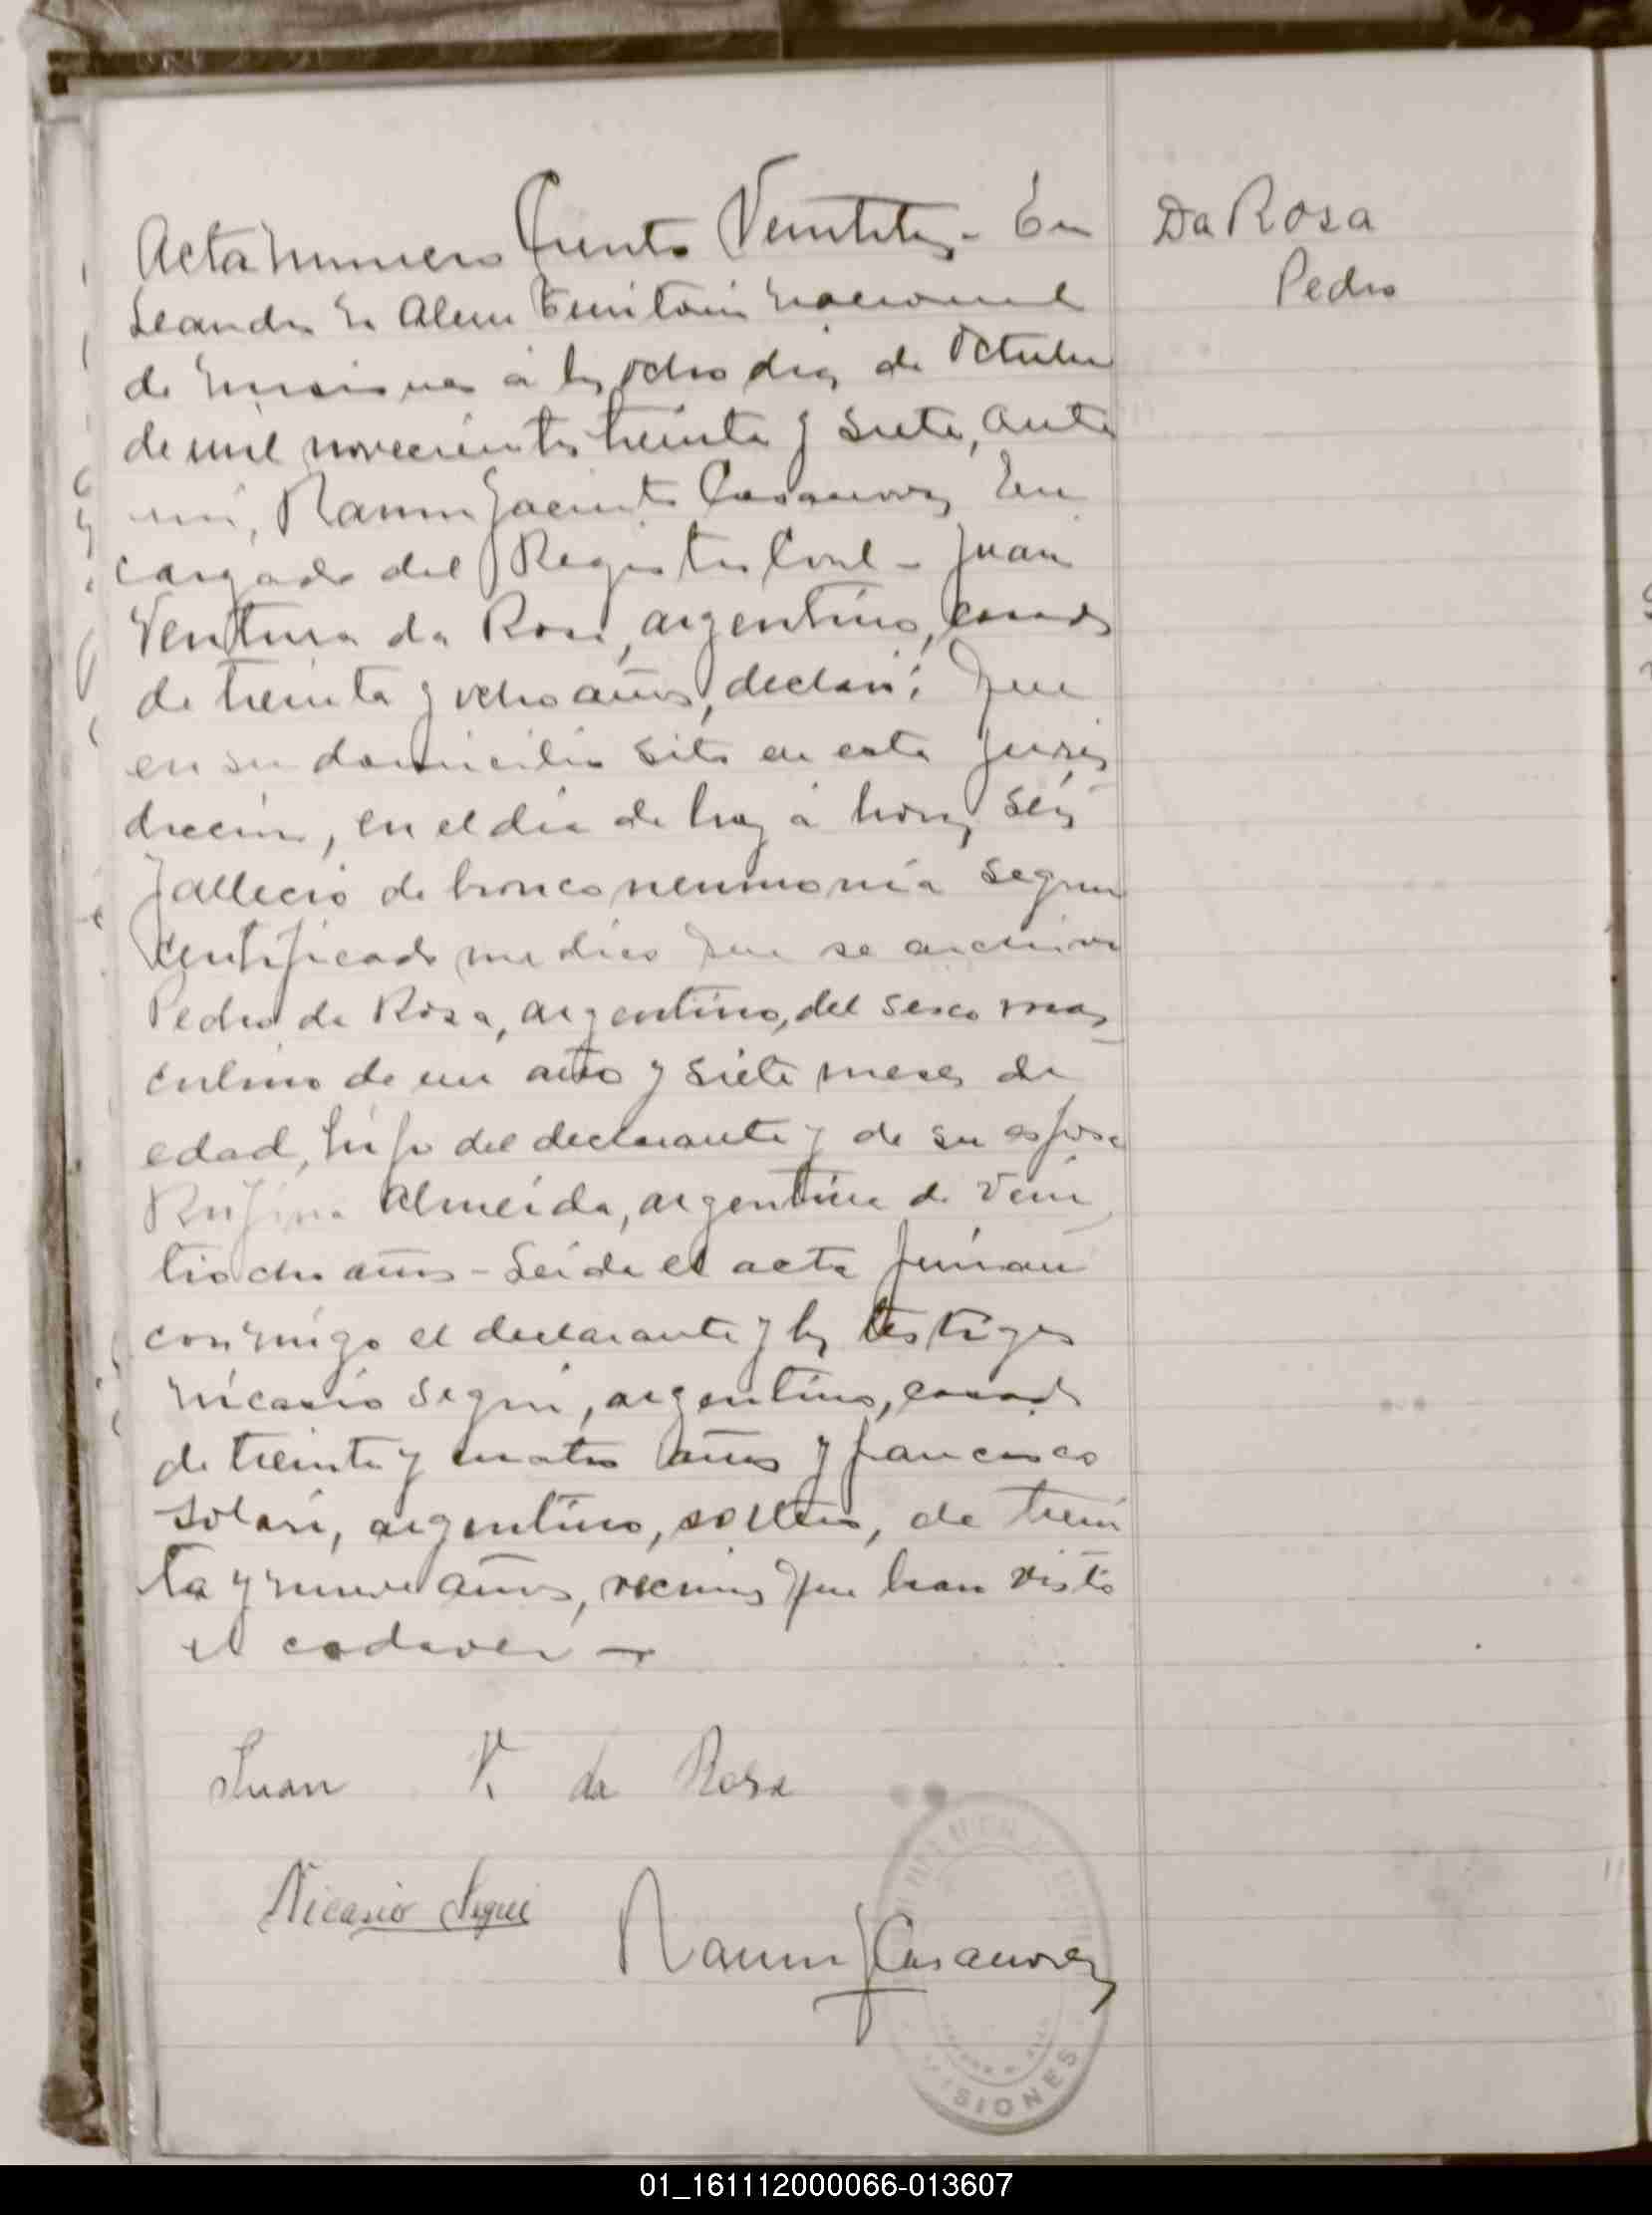 Acta numero Ciento Veintitres - En
Leandro N. Alem Territorio Nacional
de Misiones a los ocho dias de Octubre
de mil novecientos treinta y siete, ante
mi, Ramon Jacinto Casanova, En
cargado del Registro Civil - Juan
Ventura da Rosa, argentino, casado
de treinta y ocho años, declaró: Que
en su domicilio sito en esta juris
diccion, en el dia de hoy a horas seis
fallecio de bronconeumonia segun
certificado medico que se archiva
Pedro da Rosa, argentino, del sexo mas
culino de un año y siete meses de
edad, hijo del declarante y de su esposa
Rufina Almeida, argentina de vein
tiocho años - Leida el acta firman
conmigo el declarante y los testigos
Nicasio Segui, argentino, casado
de treinta y cuatro años y francisco
Solari, argentino, soltero, de trein
ta y nueve años, vecinos que han visto
el cadaver -
Da Rosa
Pedro
Juan V. da Rosa
Nicasio Segui
Ramon J Casanova
MISIONES
01_161112000066-013607